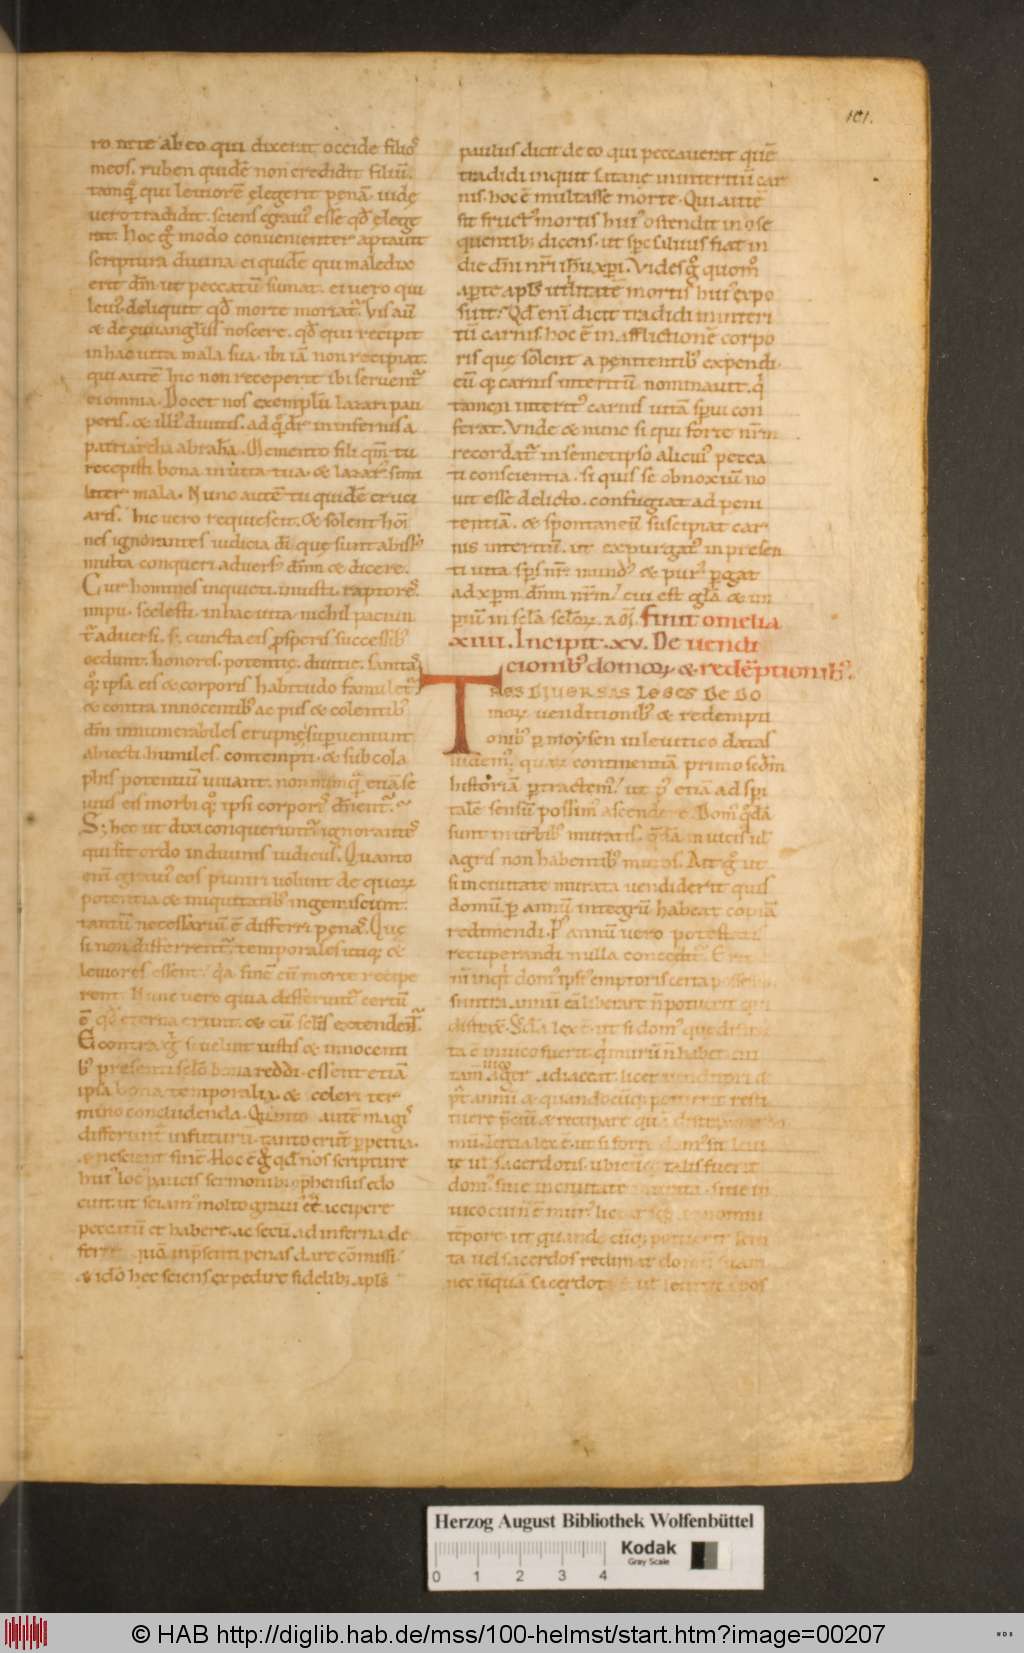 101.
ro nete ab eo qui dixerat occide filioˀ
meos. ruben quidē non credidit filiū.
tamqͣ qui leuiorē elegerit penā. iude
uero tradidit. sciens grauiˀ esse qđ elege
rat. hoc gͦ modo conuenienter aptauit
scriptura diuina ei quidē qui maledix
erit dm̄ ut peccatū sumat. ei uero qui
leuiˀ deliquit qđ morte moriatˀ. Vis aū
& de euuangliis noscere. qđ qui recipit
in hac uita mala sua. ibi iā non recipiat.
qui autē hic non receperit ibi seruentˀ
ei omnia. Docet nos exemplū lazari pau
peris. & illiˀ diuitis. ad quē dr̄ in infernis a
patriarcha abrahā. Memento fili qm̄ tu
recepisti bona in uita tua. & lazarˀ simi
liter mala. Nunc autē tu quidē cruci
aris. hic uero requiescit. & solent hoī
nes ignorantes iudicia dī. que sunt abissˀ
multa conqueri aduersˀ dn̄m & dicere.
Cur homines iniqueti. iniusti. raptoreˀ.
impii. scelesti. in hac uita nichil paciun
tˀ aduersi. s; cuncta eis prosperis successibˀ
cedunt. honores. potentie. diuitie. sanitaˀ
q; ipsa eis & corporis habitudo famuletˀ.
& contra innocentibˀ ac piis & colentibˀ
dm̄ innumerabiles erupne superueniunt
abiecti. humiles. contempti. & sub cola
phis potentiū uiuant. non numqͣ etiā se
uiuˀ eis morbi q; ipsi corporiˀ dn̄entˀ.
S; hec ut dixi conqueruntˀ ignoranteˀ
qui sit ordo in diuinis iudiciis. Quanto
enī grauiˀ eos puniri uolunt de quoꝝ
potentia & iniquitatibˀ ingemiscunt.
tantū necessariū ē differri penaˀ. Que
si non differrentˀ. temporales utiq; &
leuiores essent. qͣa finē cū morte recipe
rent. Nunc uero quia differuntˀ certū
ē qđ eterna erunt. & cū sclis extendentˀ.
Econtra gͦ si uelint iustis & innocenti
bˀ presenti sclo bona reddi. essent etiā
ipsa bona temporalia. & celeri ter
mino concludenda. Quanto autē magiˀ
differuntˀ in futurū. tanto erunt perpetua.
& nescient finē. Hoc ē gͦ qđ nos scripture
huiˀ locˀ paucis sermonibˀ
cuit. ut sciamˀ multo grauiˀ eē accipere
peccatū & habere. ac secū ad inferna de
ferre quā in presenti penas dare cōmissi.
& idō hec sciens expedire fidelib; apls
paulus dicit de eo qui peccauerat quē
tradidi inquit satane in interitū car
nis. hoc ē multasse morte. Qui autē
sit fructˀ mortis huiˀ ostendit in ꝯse
quentib; dicens. ut spc saluus fiat in
die dn̄i nr̄i ihū xp̄i. Vides gͦ quomō
aperte apls utilitate mortis huiˀ expo
suit. Qđ enī dicit tradidi in interi
tū carnis. hoc ē in afflictionē corpo
ris que solent a penitentibˀ expendi.
eū q; carnis interitū nominauit. qͥ
tamen interitˀ carnis uitā spui con
ferat. Vnde & nunc si qui forte nr̄m
recordatˀ in semetipso alicuiˀ pecca
ti conscientia. si quis se obnoxiū no
uit esse delicto. confugiat ad peni
tentiā. & spontaneū suscipiat car
nis interitū. ut expurgatˀ in presen
ti uita sps nr̄ mundˀ & purˀ pergat
ad xp̄m dn̄m nr̄m. cui est glā & im
periū in scla scloꝝ. am̄. finit omelia
xiiii. Incipit .xv. De uendi
cionibˀ domoꝝ & redēptionibˀ.
Tres diuersas leges de do
moꝝ uenditionibˀ & redempti
onibˀ per moysen in leuitico datas
uidemˀ. quaꝝ continentiā primo scdm
historiā pertractemˀ. ut pˀ etiā ad spi
talē sensū possimˀ ascendere. Domˀ qdā
sunt in urbibˀ muratis. qdā in uicis ul
agris non habentibˀ muros. Ait gͦ ut
si in ciuitate murata uendiderit quis
domū per annū integrū habeat copiā
redimendi. Pˀ annū uero potestas
recuperandi nulla conceditˀ. Erit
domˀ ipsˀ emptoris certa possessio
ta ē in uico fuerit qͥ murū n̄ habet. cui
tam̄ ager adiaceat. licet uenditori &
pˀ annū & quandocūq; potuerit resti
tuere p̄ciū & recipare quā distraxerat do
mū. Tertia lex ē. ut si forte domˀ sit leui
te ul sacerdotis. ubicūq; talis fuerit
domˀ. siue in ciuitate murata. siue in
uico cui n̄ ē murˀ liceat semp omni
tēpore. ut quandocūq; potuerit leui
ta uel sacerdos redimat domū suam
nec ūquā sacerdot
Herzog August Bibliothek Wolfenbüttel
Kodak
Gray Scale
0 1 2 3 4
© HAB http://diglib.hab.de/mss/100-helmst/start.htm?image=00207